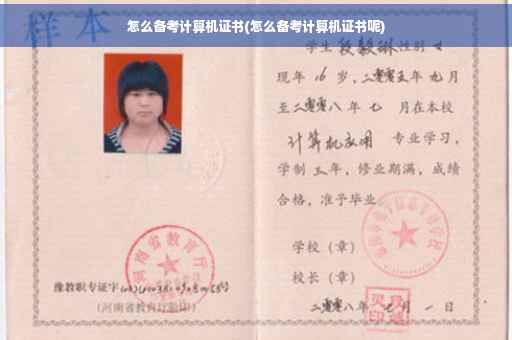 怎么备考计算机证书(怎么备考计算机证书呢)
样本
学生 段毅琳 性别 女
现年 16 岁，二零零五年 九 月
至二零零八年 七 月在本校
计算机应用 专业学习，
学制 三 年，修业期满，成绩
合格，准予毕业。
学校（章）
校长（章）
二零零八年 七 月 一 日
河南省教育厅
豫教职专证字
(河南省教育厅验印)